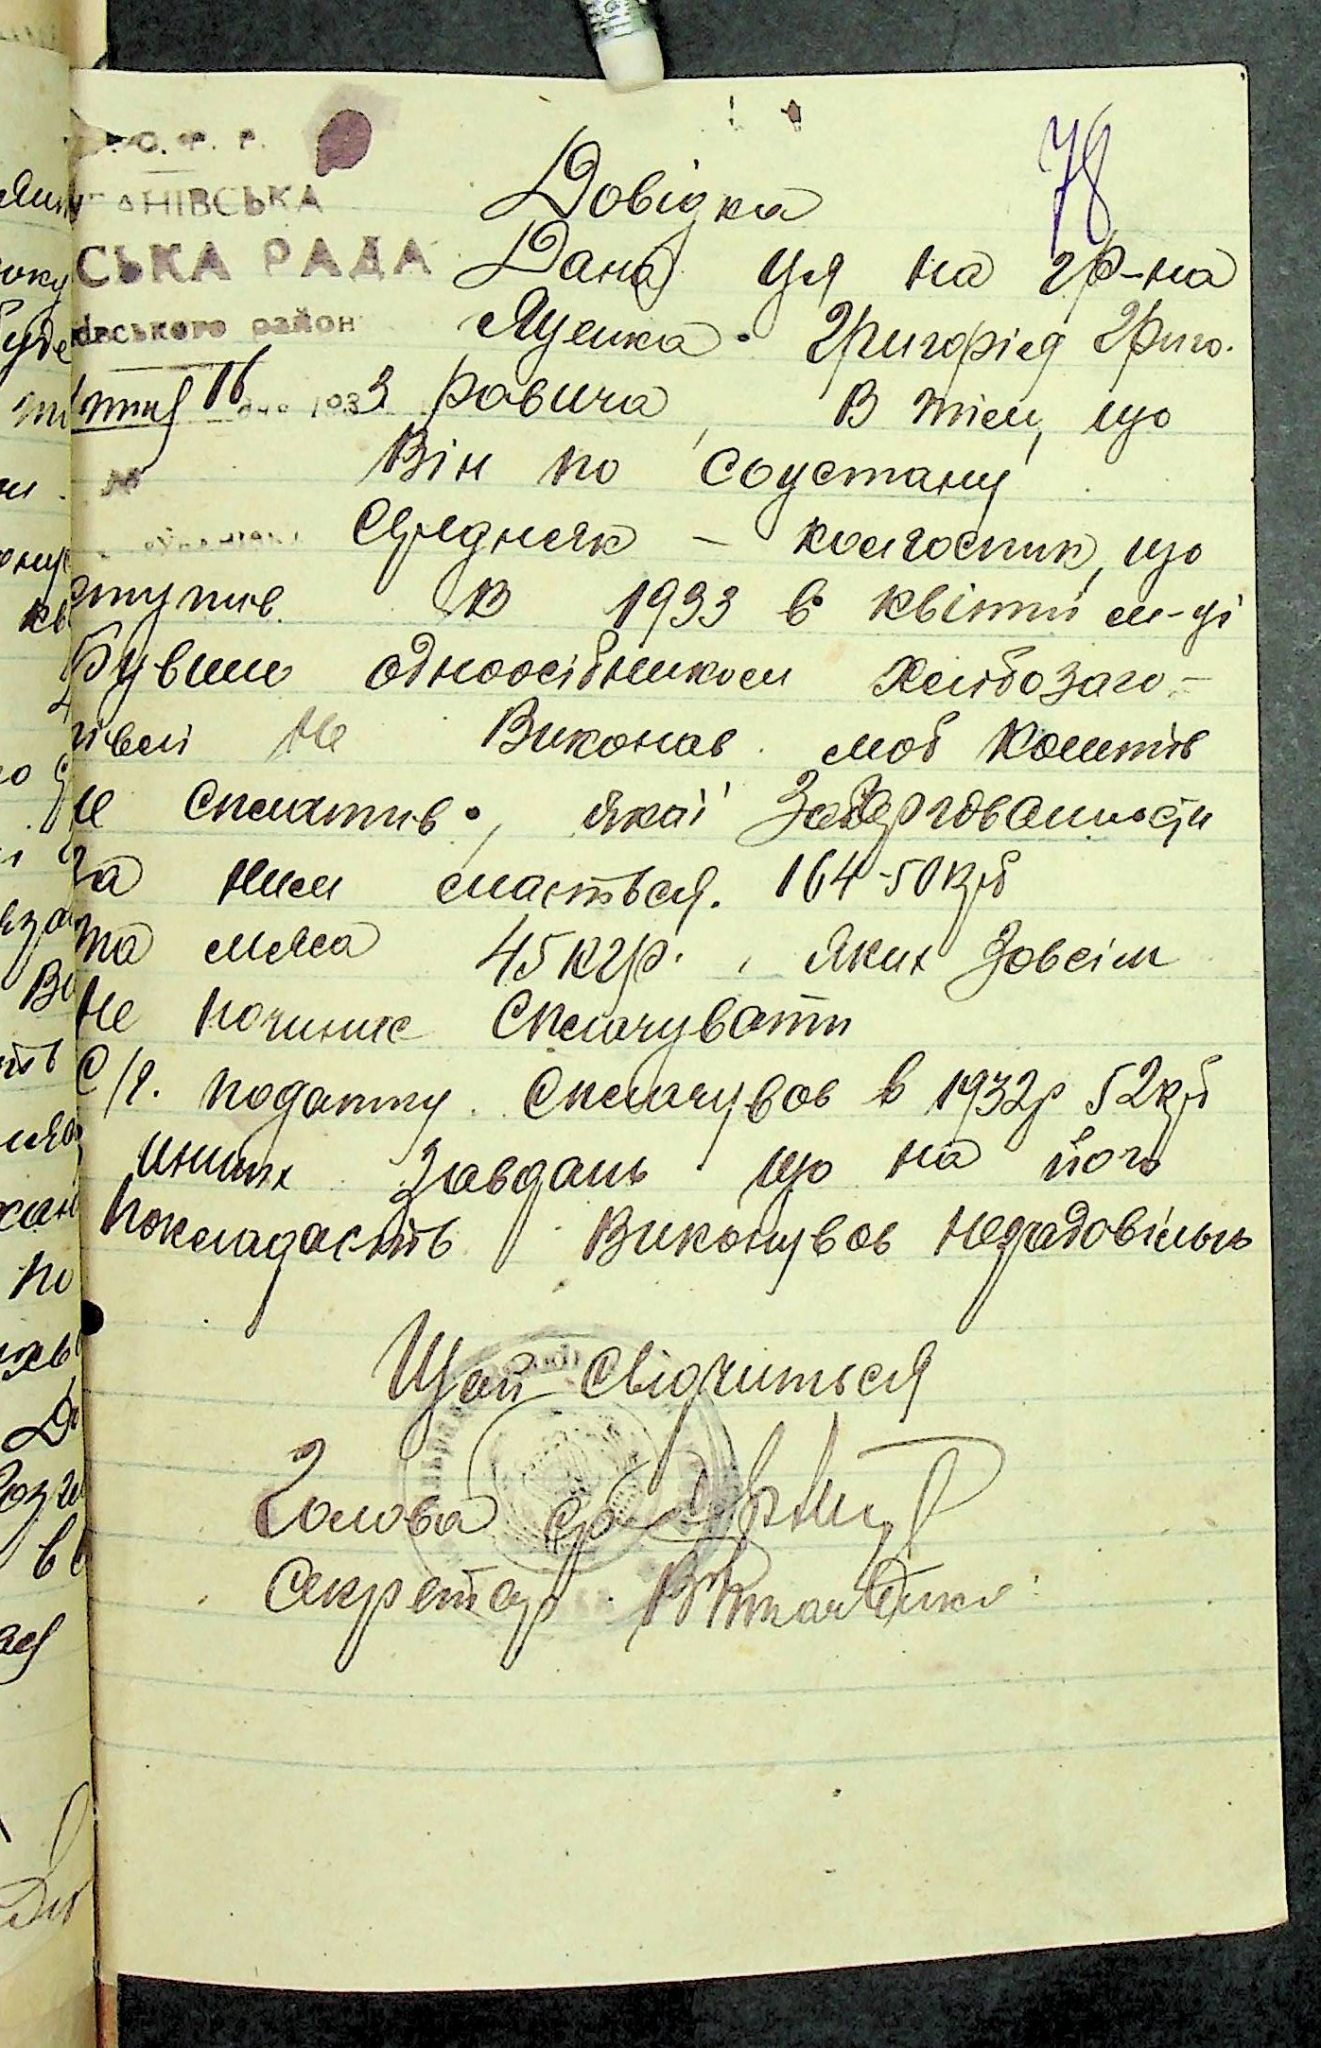 78
С. Р. Р.
АНІВСЬКА
СЬКА РАДА
вського район
16 1933
Довідка
Дана ця на гр-на
Яценка Григорія Григо-
ровича, В тім, що
Він по соцстану
Середняк - колгоспник, що
ступив В 1933 в квітні м-ці
Бувши одноосібником хлібозаго-
тівлі Не Виконав моб коштів
не сплатив, якої Заборгованности
За ним мається. 164-50крб
та мяса 45 кгр., яких Зовсім
Не починає Сплачувати
С/г. податку. Сплачував в 1932р 52крб
инших Завдань що на його
Покладають Виконував незадовільно
Що й свідчиться
Голова с/р
Секретар